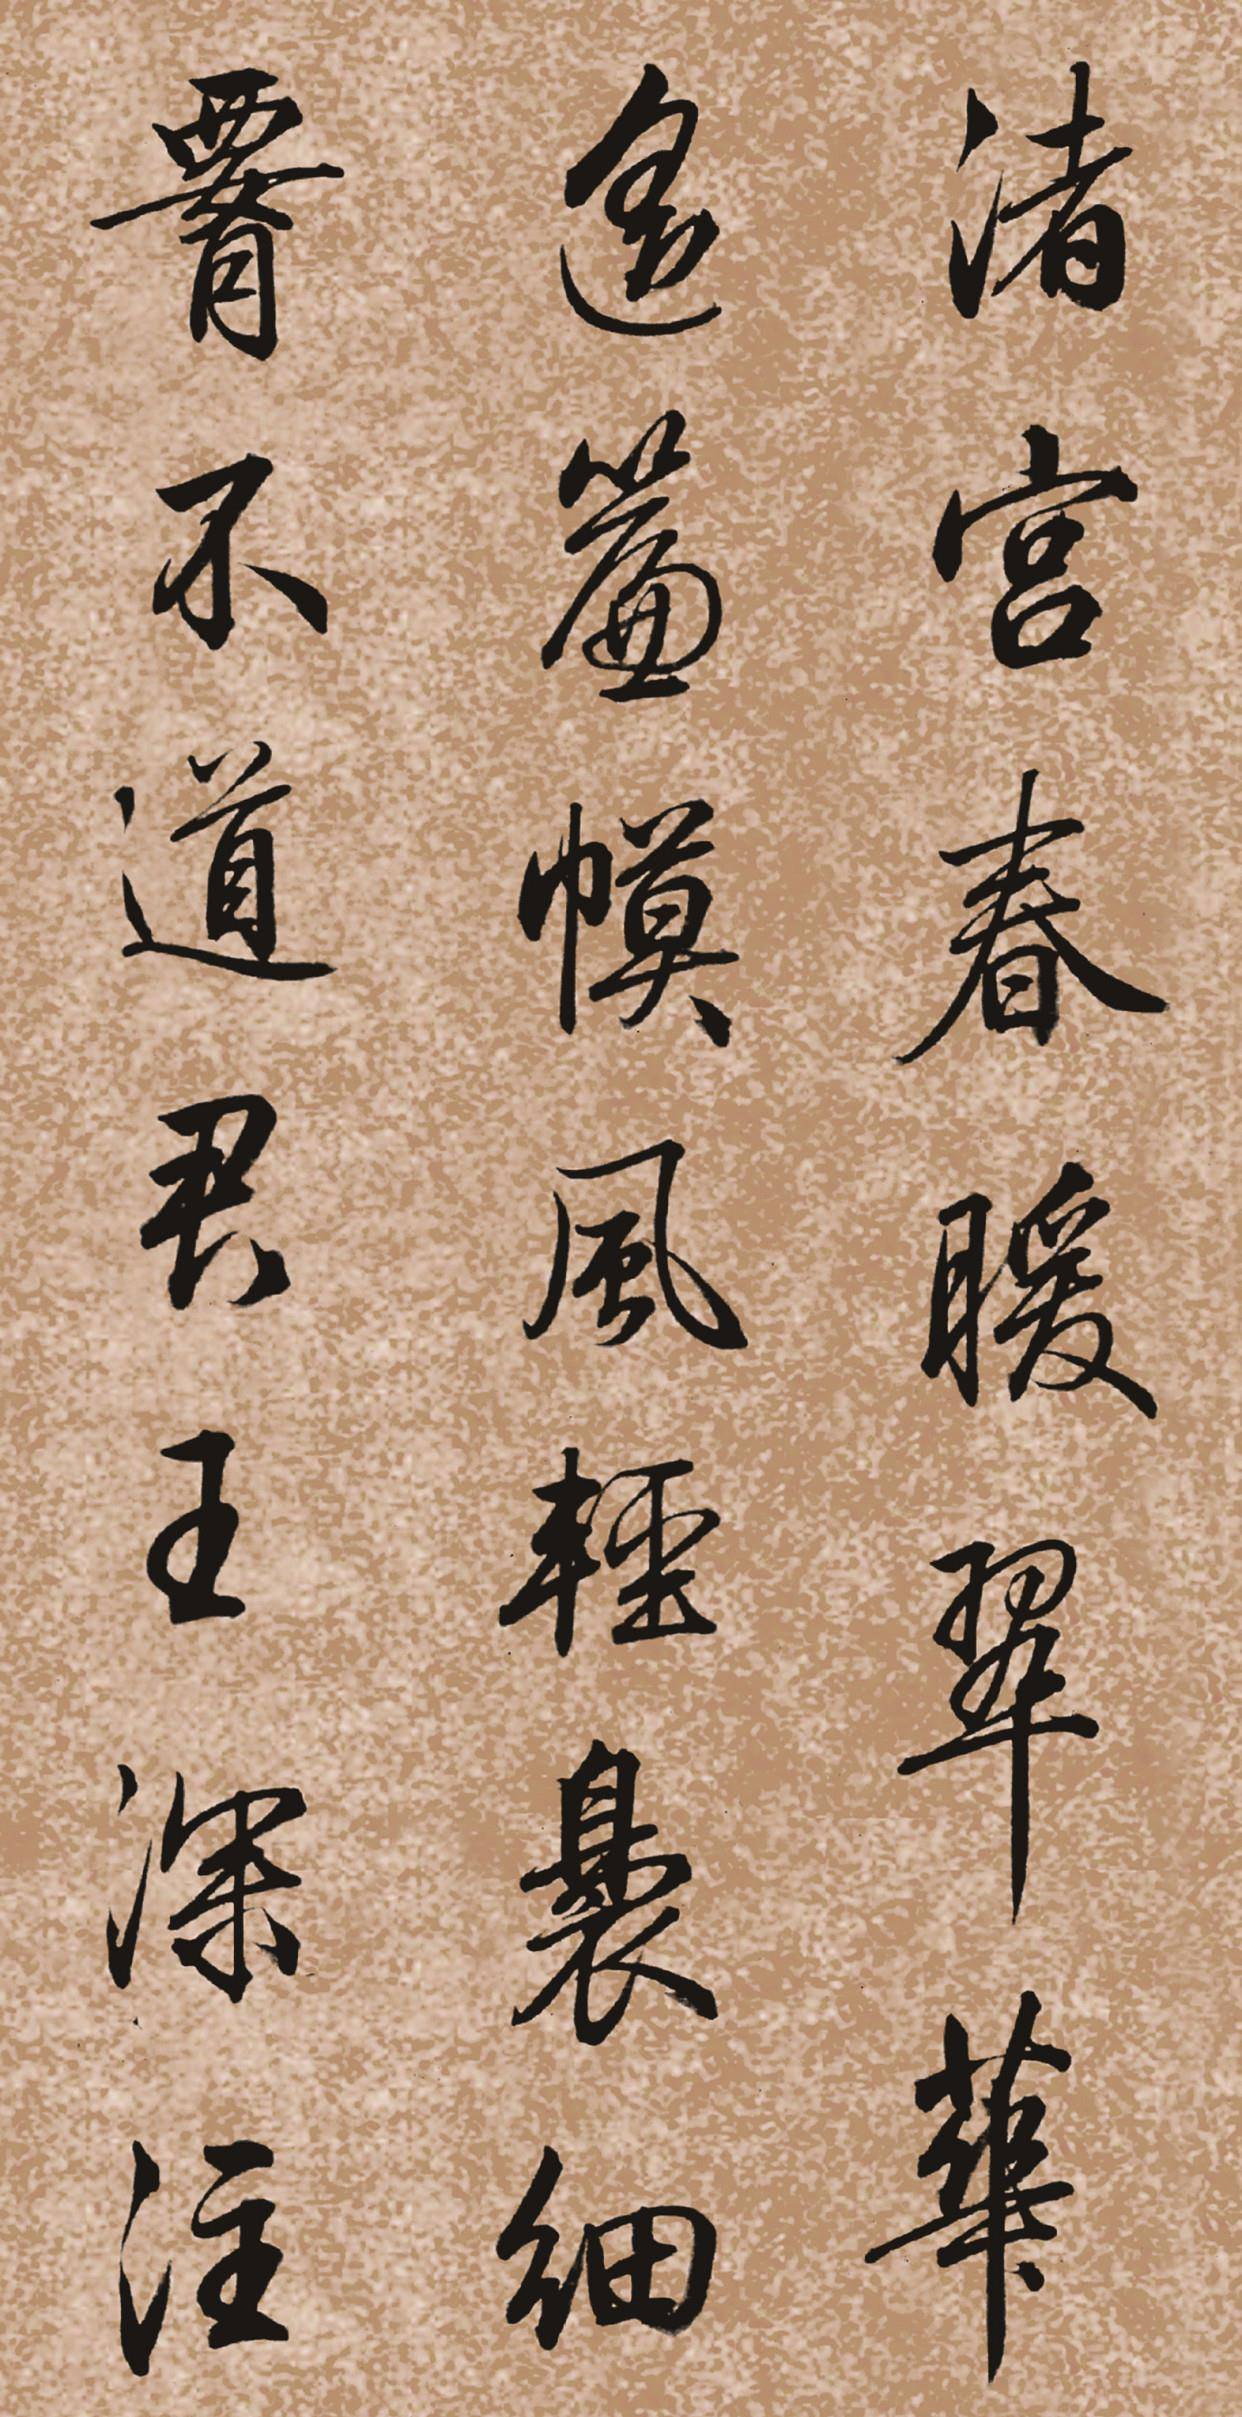 渚宮春暖翠華
遙簾幙風輕裊細
署不道君王深注